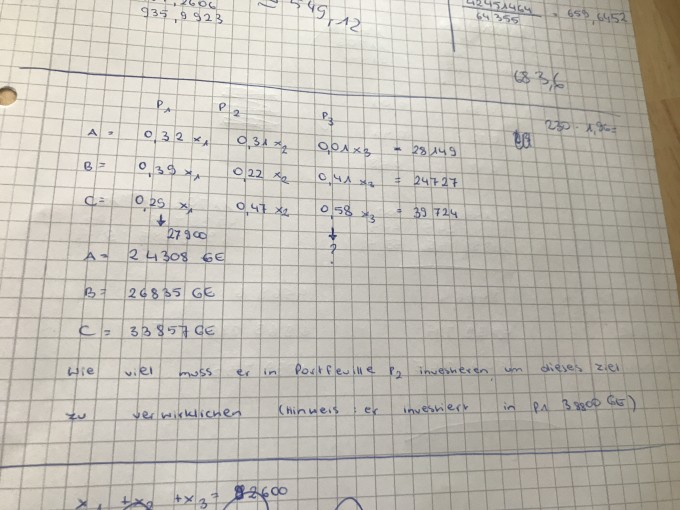 935,9923
549,12
42451464
64355
= 659,6452
683,6
P1 P2 P3
230 · 1,96=
A = 0,32 x1 0,31 x2 0,01 x3 = 28149
B = 0,39 x1 0,22 x2 0,41 x3 = 24727
C = 0,29 x1 0,47 x2 0,58 x3 = 39724
↓ ↓
27900 ?
A = 24308 GE
B = 26835 GE
C = 33857 GE
Wie viel muss er in Portfeuille P2 investieren, um dieses ziel
zu verwirklichen (Hinweis: er investiert in P1 38800 GE)
x1 +x2 +x3 = 92600